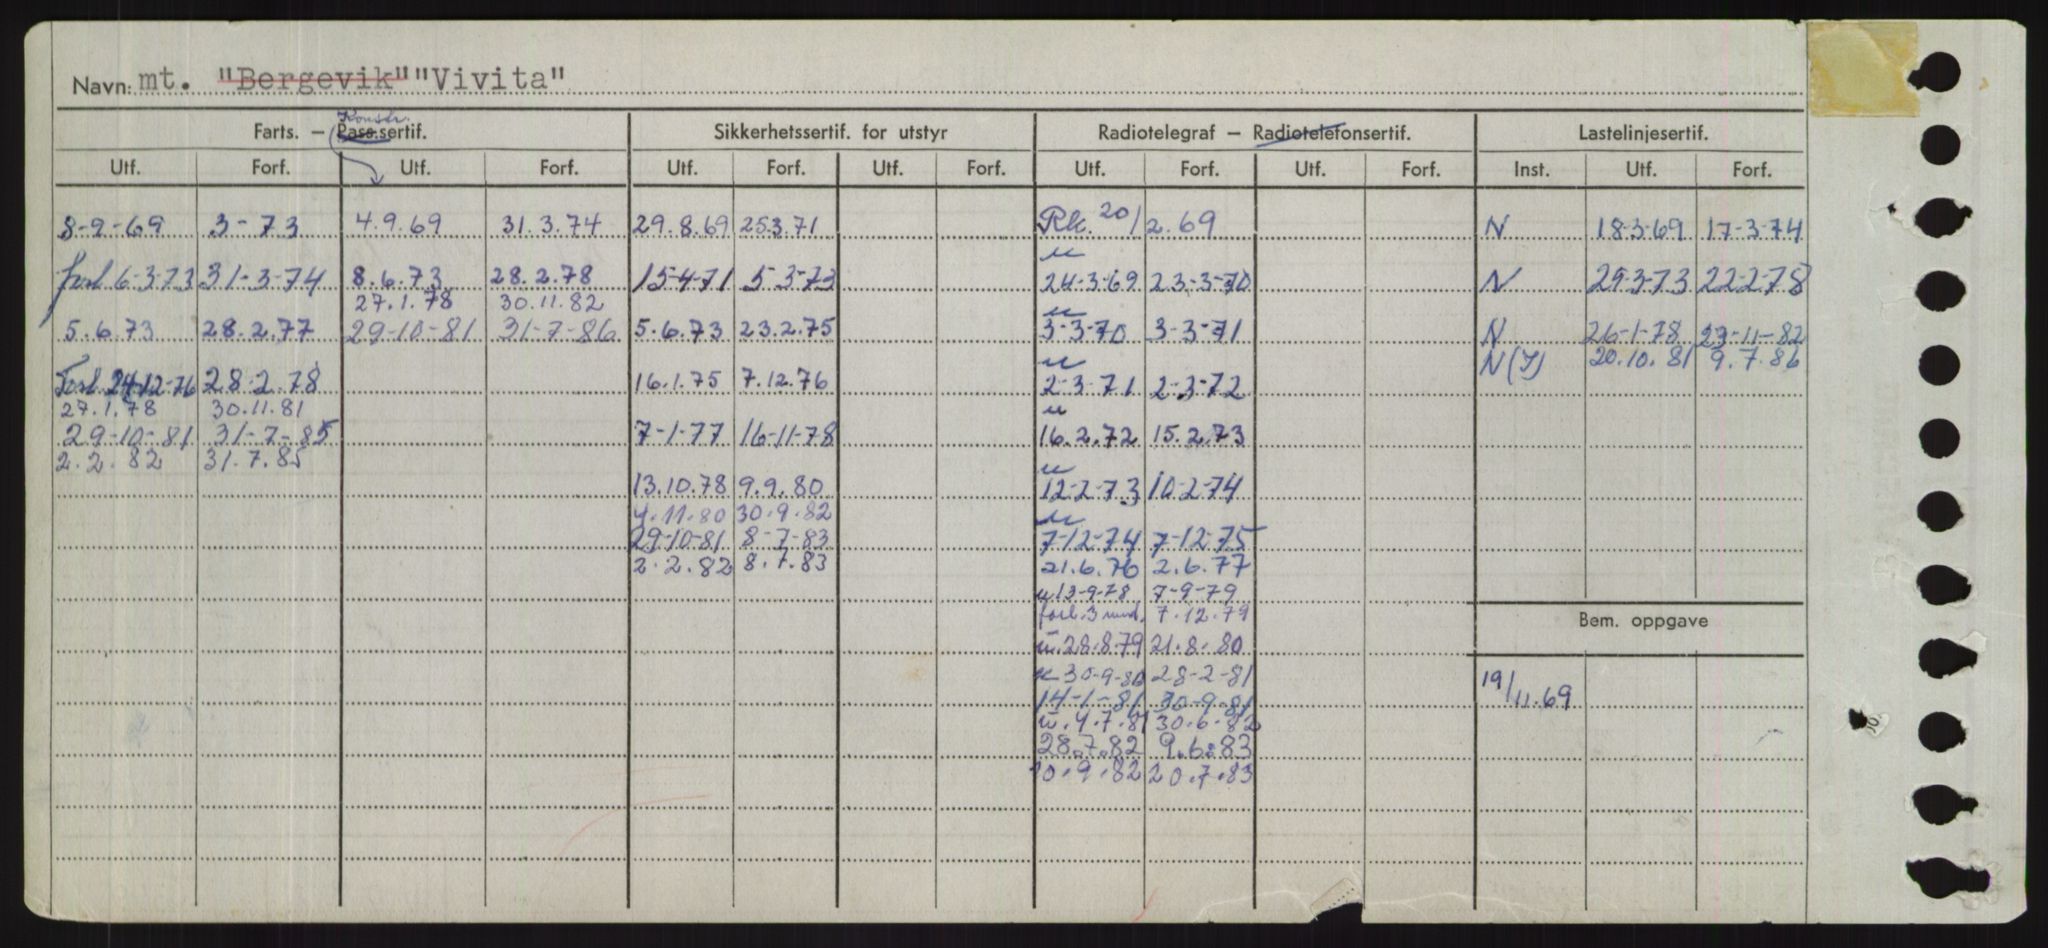 Navn: mt. "Bergevik" "Vivita"
Konstr.
Farts. — Pass.sertif. Sikkerhetssertif. for utstyr Radiotelegraf — Radiotelefonsertif. Lastelinjesertif.
Utf. Forf. Utf. Forf. Utf. Forf. Utf. Forf. Utf. Forf. Utf. Forf. Inst. Utf. Forf.
8-9-69 3-73 4.9.69 31.3.74 29.8.69 25.3.71 Rk. 20/2.69 N 18-3-69 17-3-74
u
forl 6-3-73 31-3-74 8.6.73 28.2.78 15-4-71 5-3-73 24-3-69 23-3-70 N 29-3-73 22-2-78
27.1.78 30.11.82
u
5.6.73 28.2.77 29-10-81 31-7-86 5.6.73 23.2.75 3-3-70 3-3-71 N 26-1-78 23-11-82
u N(I) 20.10.81 9.7.86
Forl 24-12-76 28-2-78 16.1.75 7.12.76 2-3-71 2-3-72
27.1.78 30.11.81 u
29-10-81 31-7-85 7-1-77 16-11-78 16.2.72 15.2.73
2.2.82 31.7.85 u
13.10.78 9.9.80 12-2-73 10-2-74
4.11.80 30.9.82 u
29-10-81 8-7-83 7-12-74 7-12-75
2.2.82 8.7.83 21.6.76 2.6.77
u 13-9-78 7-9-79
forl. 3 mnd. 7.12.79
Bem. oppgave
u. 28.8.79 21.8.80
u 30-9-80 28-2-81
19/11.69
14-1-81 30-9-81
u. 4.7.81 30.6.82
28.7.82 9.6.83
10.9.82 20.7.83